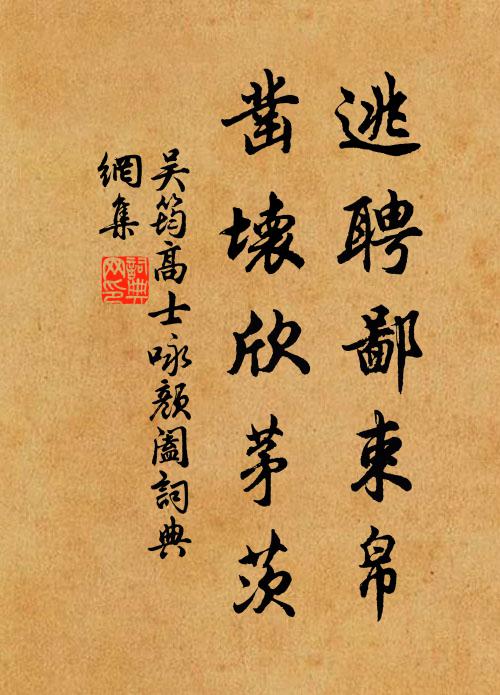 逃聘鄙束帛
凿壞欣茅茨
吴筠高士咏顏阖詞典
網集
詞典
网印